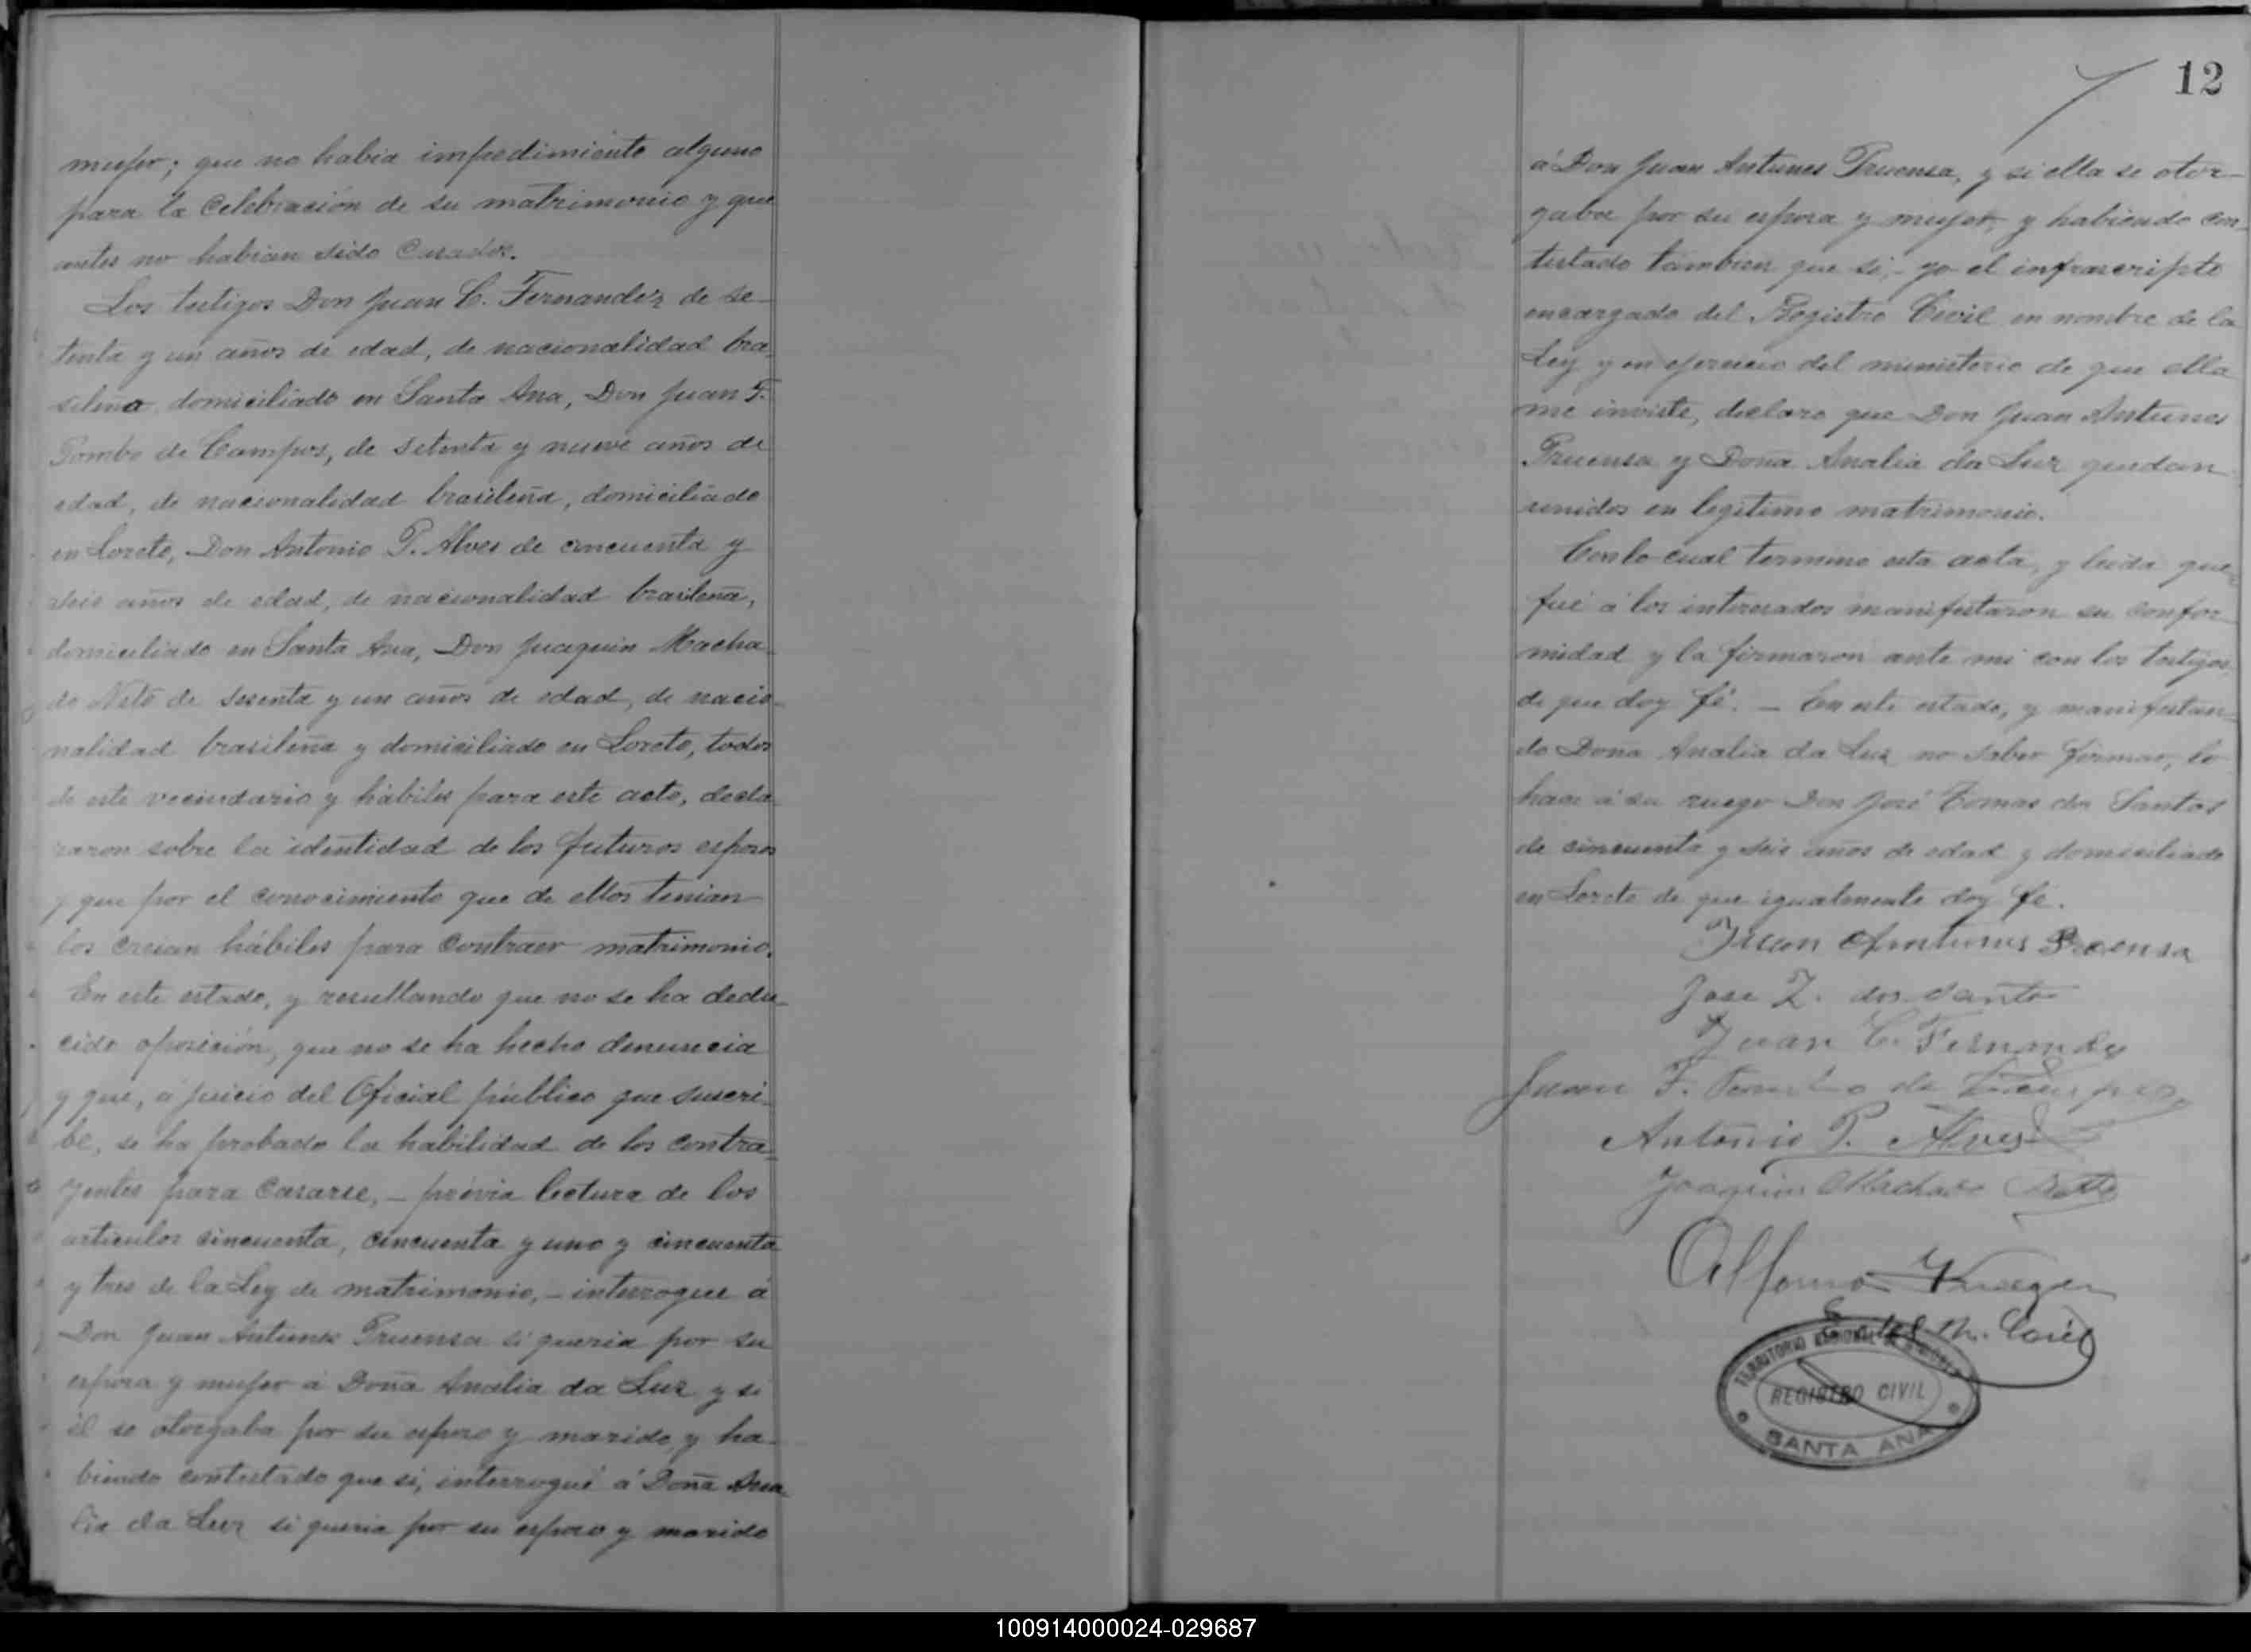 mujer; que no habia impedimiento alguno
para la Celebración de su matrimonio y que
antes no habian sido Casados.
Los testigos Don Juan C. Fernandez de se-
tenta y un años de edad, de nacionalidad bra-
sileña domiciliado en Santa Ana, Don Juan F.
Pombo de Campos, de setenta y nueve años de
edad, de nacionalidad brasileña, domiciliado
en Loreto, Don Antonio P. Alves de cincuenta y
seis años de edad, de nacionalidad brasileña,
domiciliado en Santa Ana, Don Juaquin Macha-
do Neto de sesenta y un años de edad, de nacio-
nalidad brasileña y domiciliado en Loreto, todos
de este vecindario y hábiles para este acto, decla-
raron sobre la identidad de los futuros esposos
y que por el conocimiento que de ellos tenian
los creian hábiles para Contraer matrimonio.
En este estado, y resultando que no se ha dedu-
cido oposición, que no se ha hecho denuncia
y que, a juicio del Oficial público que suscri-
be, se ha probado la habilidad de los contra-
yentes para Casarse, - prévia lectura de los
articulos cincuenta, cincuenta y uno y cincuenta
y tres de la Ley de matrimonio, - interrogue á
Don Juan Antunes Pruensa si queria por su
esposa y mujer á Doña Analia da Luz y si
él se otorgaba por su esposo y marido, y ha-
biendo contestado que si, interrogué á Doña Ana-
lia da Luz si queria por su esposo y marido
12
á Don Juan Antunes Pruensa, y si ella se otor-
gaba por su esposa y mujer, y habiendo con-
testado tambien que si, - yo el infrascripto
encargado del Registro Civil en nombre de la
Ley y en ejercicio del ministerio de que ella
me inviste, declaro que Don Juan Antunes
Pruensa y Doña Analia da Luz quedan
unidos en legitimo matrimonio.
Con lo cual termino esta acta, y leida que
fué á los interesados manifestaron su confor-
midad y la firmaron ante mi con los testigos
de que doy fé. - En este estado, y manifestan-
do Doña Analia da Luz no saber firmar, lo
hace á su ruego Don José Tomas dos Santos
de cincuenta y seis años de edad y domiciliado
en Loreto de que igualmente doy fé.
Juan Antunes Proensa
Jose T. dos Santo
Juan C. Fernandez
Juan F. Pombo de Campos
Antonio P. Alves
Joaquim Machado Netto
Alfonso Krueger
TERRITORIO NACIONAL DE MISIONES
REGISTRO CIVIL
SANTA ANA
100914000024-029687